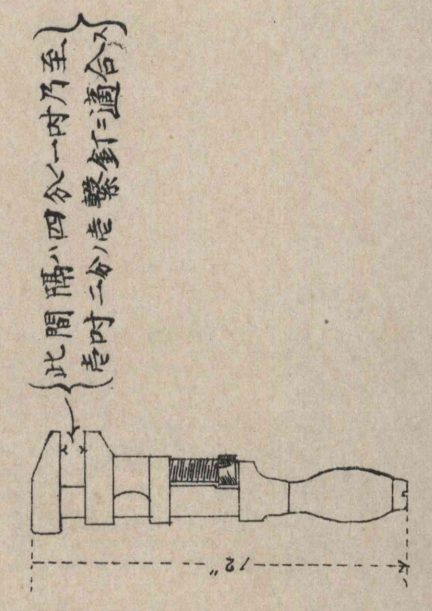 此間隔ハ四分ノ一吋乃至
壱吋二分ノ壱繋釘ニ適合ス
12"